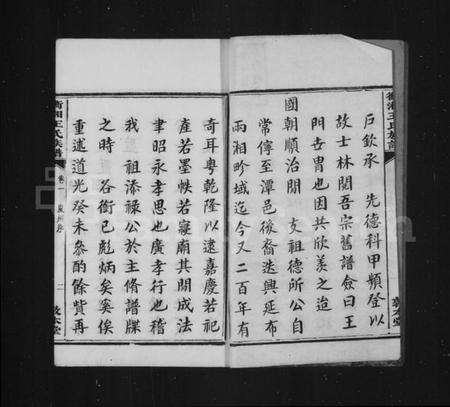 衡湘王氏族譜
戶欽承　先德科甲頻登以
故士林閱吾宗舊譜僉曰王
門吉冑也因共欣羨之迨
國朝順治間　支祖德所公自
常停至潭邑後裔迭興延布
兩湘畛域迄今又二百年有
奇耳粵乾隆以逮嘉慶若祀
產若墨帙若寢廟其間成法
聿昭永孝思也廣孝行也稽
我　祖添祿公於主脩譜牒
之時　咨銜已彪炳矣奚俟
重述道光癸未叅酌餘貲再
衡湘王氏族譜
卷一
二
敦本堂